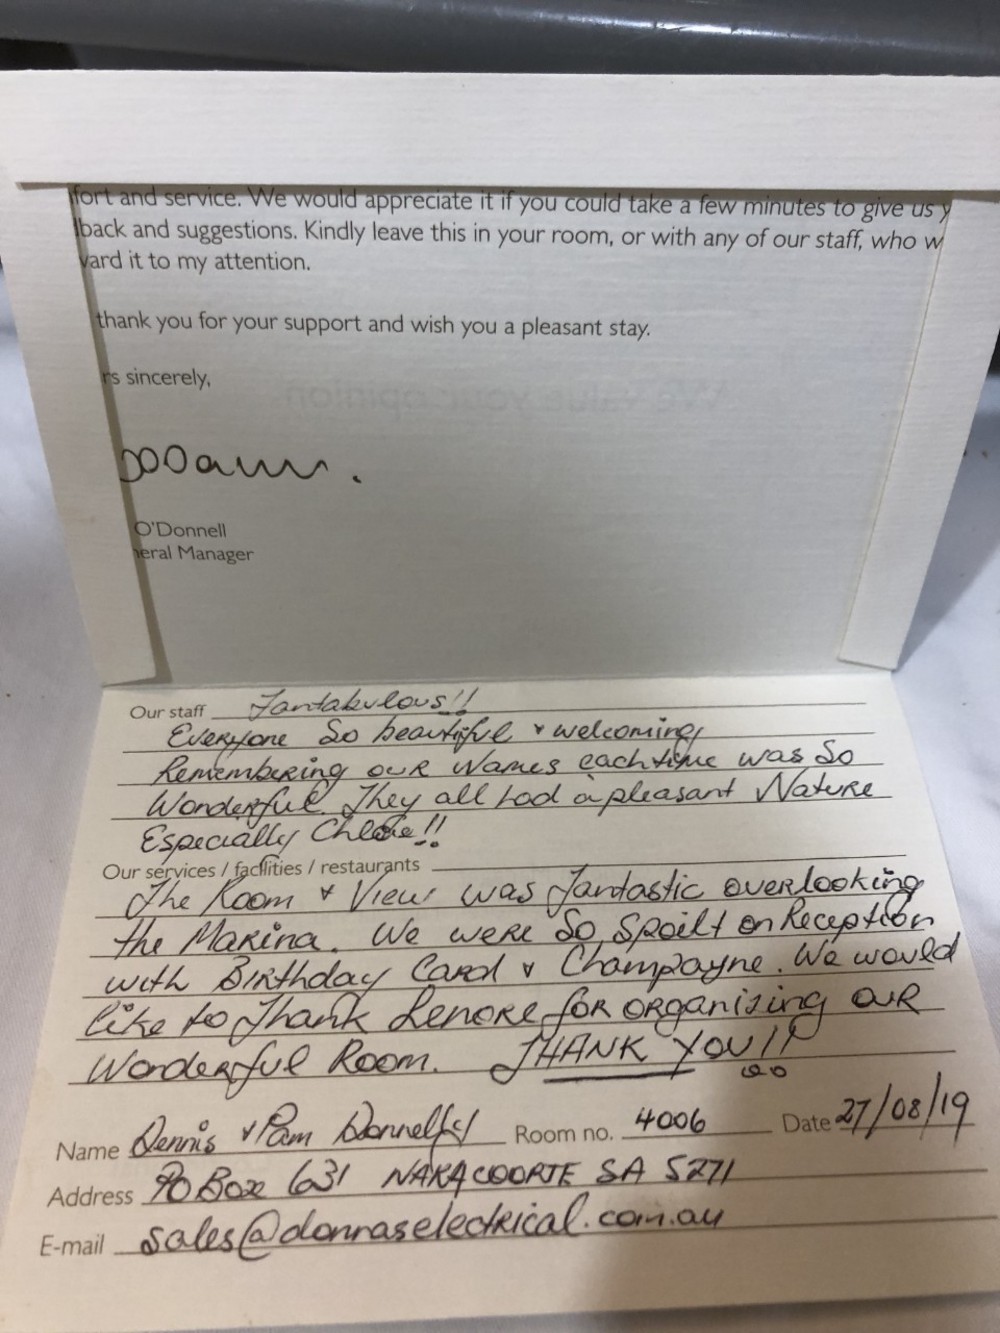 fort and service. We would appreciate it if you could take a few minutes to give us y
back and suggestions. Kindly leave this in your room, or with any of our staff, who w
ward it to my attention.
thank you for your support and wish you a pleasant stay.
rs sincerely,
O'Donnell
neral Manager
Our staff Fantabulous!!
Everyone So beautiful & welcoming
Remembering our Names each time was So
Wonderful. They all had a pleasant Nature
Especially Chloe!!
Our services / facilities / restaurants
The Room & View was Fantastic overlooking
the Marina. We were So Spoilt on Reception
with Birthday Card & Champayne. We would
like to Thank Lenore for organising our
Wonderful Room. THANK YOU!!
Name Dennis & Pam Room no. 4006 Date 27/08/19
Address PO Box 631 NARACOORTE SA 5271
E-mail sales@donnaselectrical.com.au